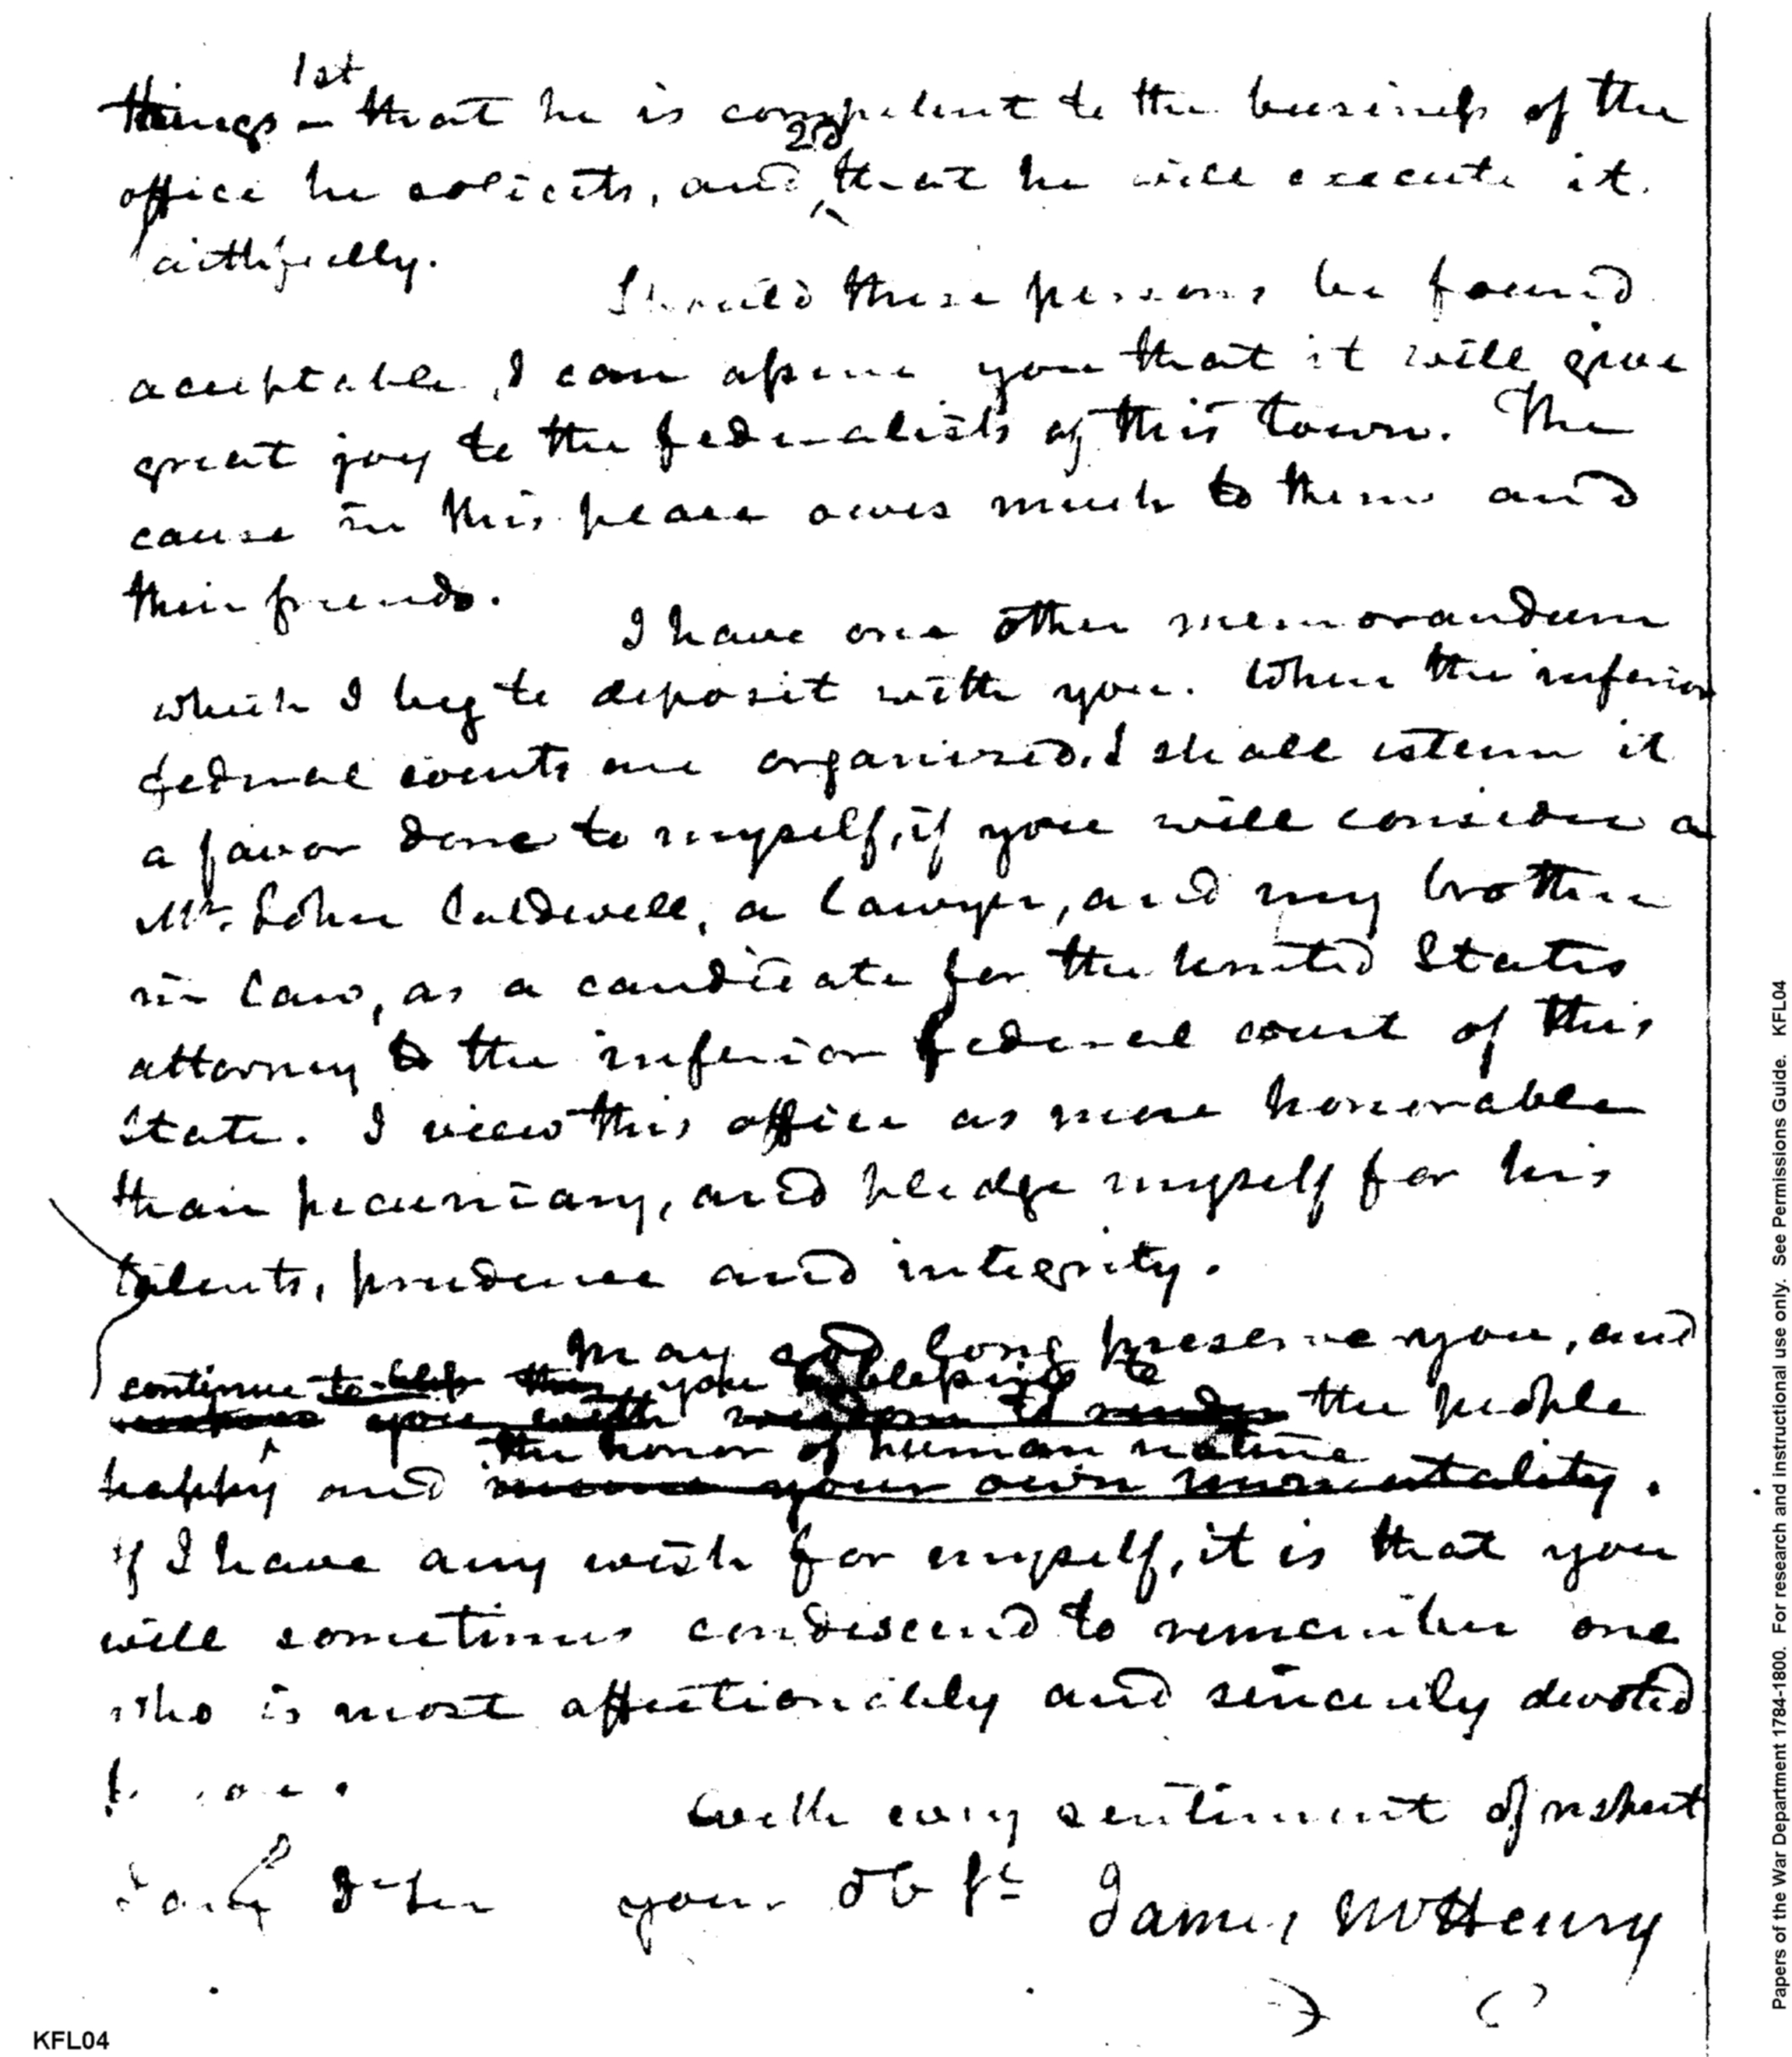 1st
things – that he is competent to the business of the
2d
office he solicits, and ‸ that he will execute it
faithfully.
Should these persons be found
acceptable, I can assure you that it will give
great joy to the federalists of this town. The
cause in this place owes much to them and
their friends.
I have one other memorandum
which I beg to deposit with you. When the inferior
federal courts are organized, I shall esteem it
a favor done to myself, if you will consider a
Mr. John Caldwell, a lawyer, and my brother
in law, as a candidate for the United States
attorney to the inferior federal court of this
State. I view this office as more honorable
than pecuniary, and pledge myself for his
talents, prudence and integrity.
May god long preserve you, and
continue to bless you a blessing to
you with wisdom to render the people
the honor of human nature
happy and your own immortality.
If I have any wish for myself, it is that you
will sometimes condescend to remember one
who is most affectionately and sincerely devoted
to you.
With every sentiment of respect
I am Dr Sir your Ob St James McHenry
KFL04
Papers of the War Department 1784-1800. For research and instructional use only. See Permissions Guide. KFL04